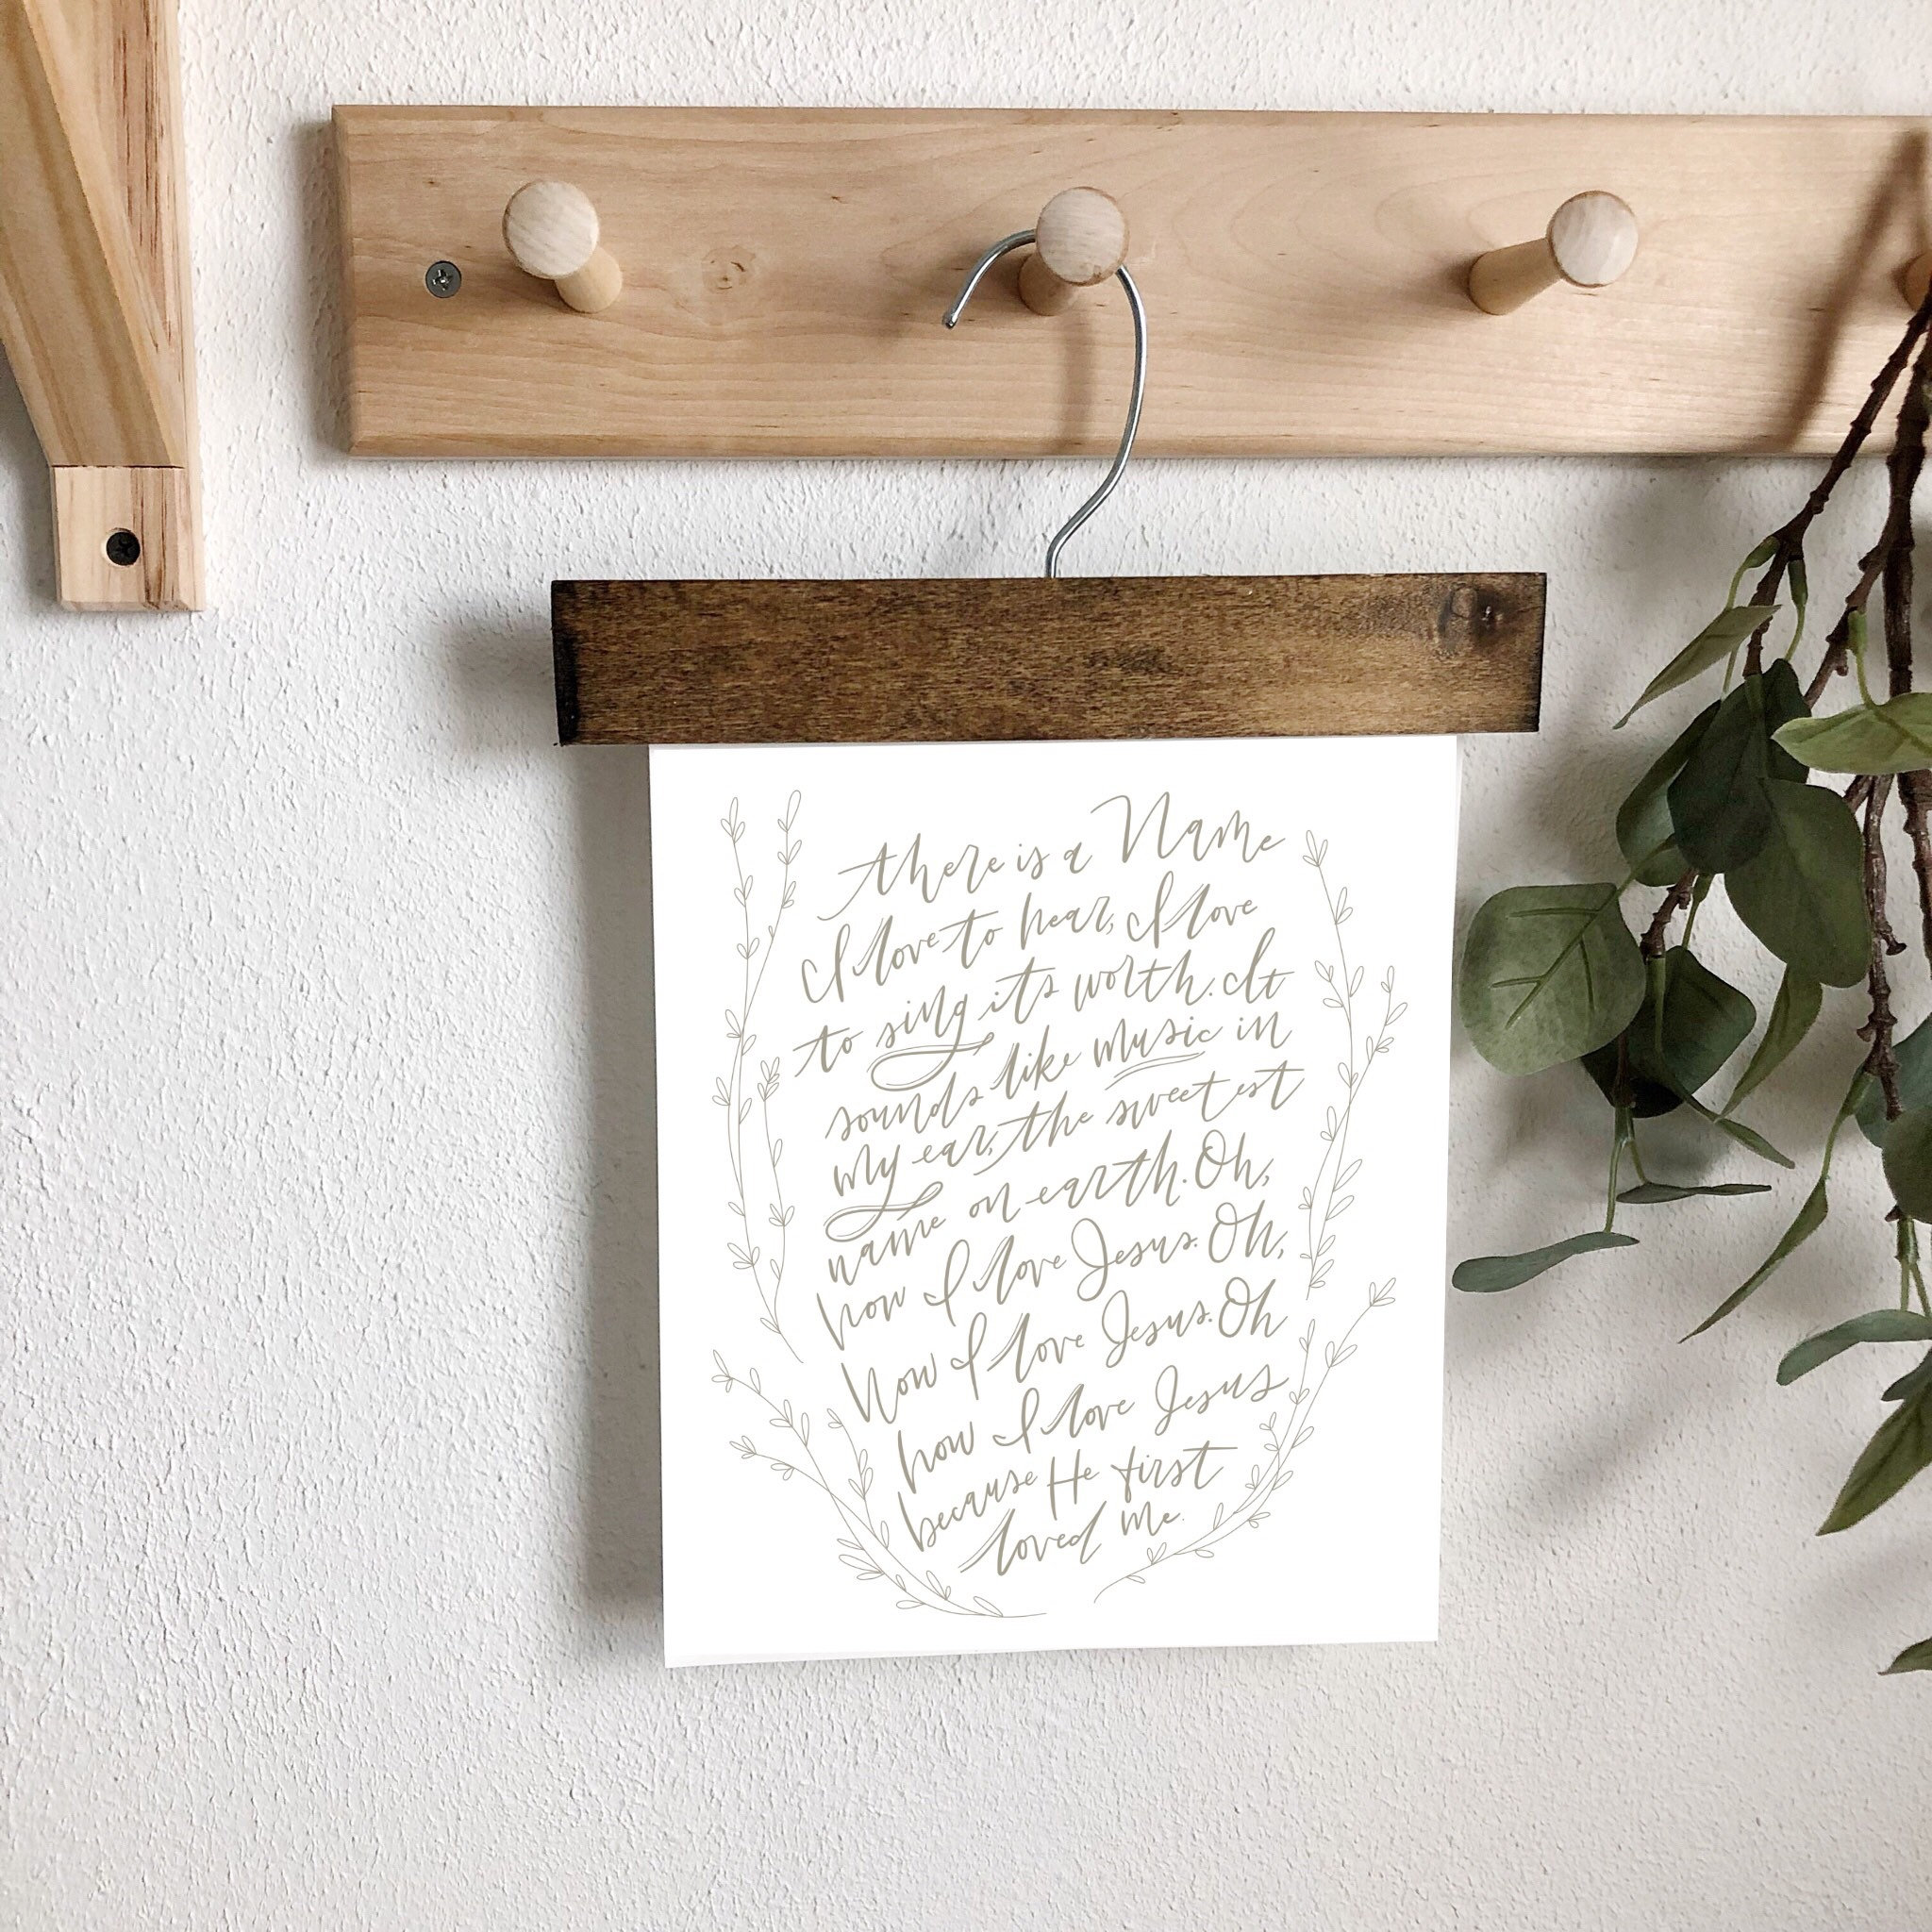 there is a Name
I love to hear, I love
to sing it's worth. It
sounds like music in
my ear, the sweetest
name on earth. Oh,
how I love Jesus. Oh,
How I love Jesus. Oh
how I love Jesus
because He first
loved me.